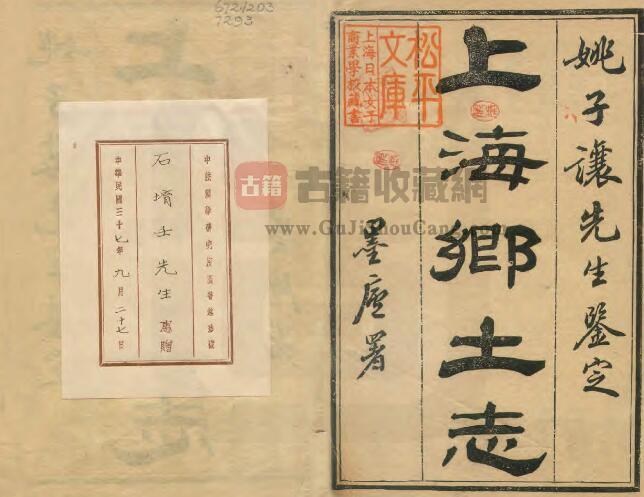 姚子讓先生鑒定
上海鄉土志
墨廬署
松平
文庫
上海日本女子
商業學校藏書
672/203
7293
石壻壬先生惠贈
中華民國三十七年九月二十七日
古籍
古籍收藏網
www.GuJiShouCang.com